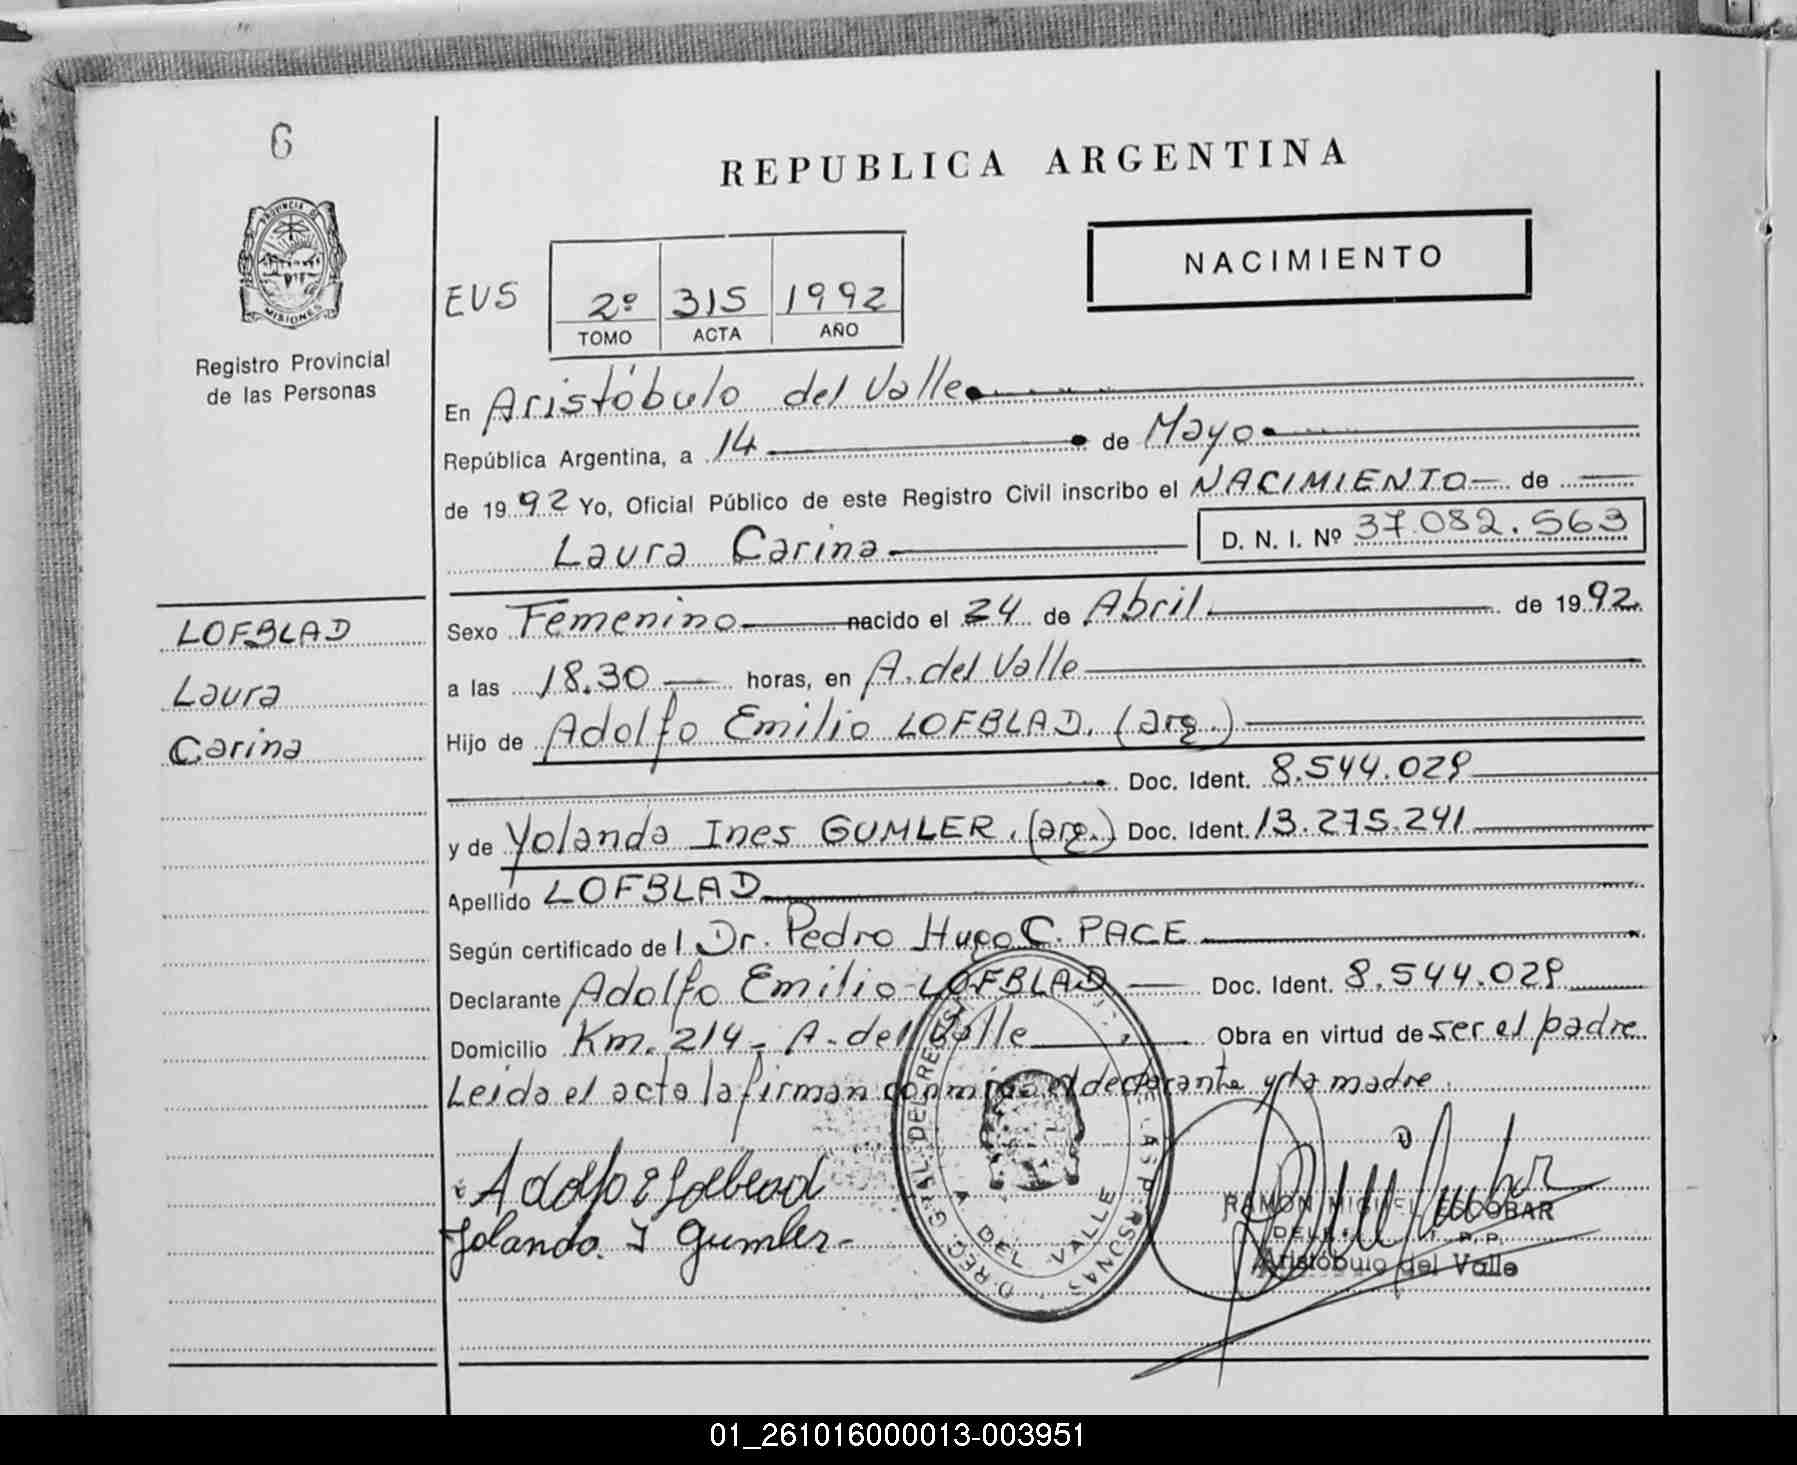 6
PROVINCIA DE
MISIONES
Registro Provincial
de las Personas
LOFBLAD
Laura
Carina
REPUBLICA ARGENTINA
NACIMIENTO
EUS
2º 315 1992
TOMO ACTA AÑO
En Aristóbulo del Valle
República Argentina, a 14 de Mayo
de 1992 Yo, Oficial Público de este Registro Civil inscribo el NACIMIENTO de
Laura Carina D. N. I. Nº 37.082.563
Sexo Femenino nacido el 24 de Abril de 1992
a las 18.30 horas, en A. del Valle
Hijo de Adolfo Emilio LOFBLAD. (arg.)
Doc. Ident. 8.544.029
y de Yolanda Ines GUMLER. (arg.) Doc. Ident. 13.275.241
Apellido LOFBLAD
Según certificado de l Dr. Pedro Hugo C. PACE
Declarante Adolfo Emilio LOFBLAD Doc. Ident. 8.544.029
Domicilio Km. 214 - A. del Valle Obra en virtud de ser el padre
Leida el acta la firman conmigo el declarante y la madre.
Adolfo E Lofblad
Yolanda I Gumler
A DEL VALLE
RAMON MIGUEL ESCOBAR
Aristóbulo del Valle
01_261016000013-003951